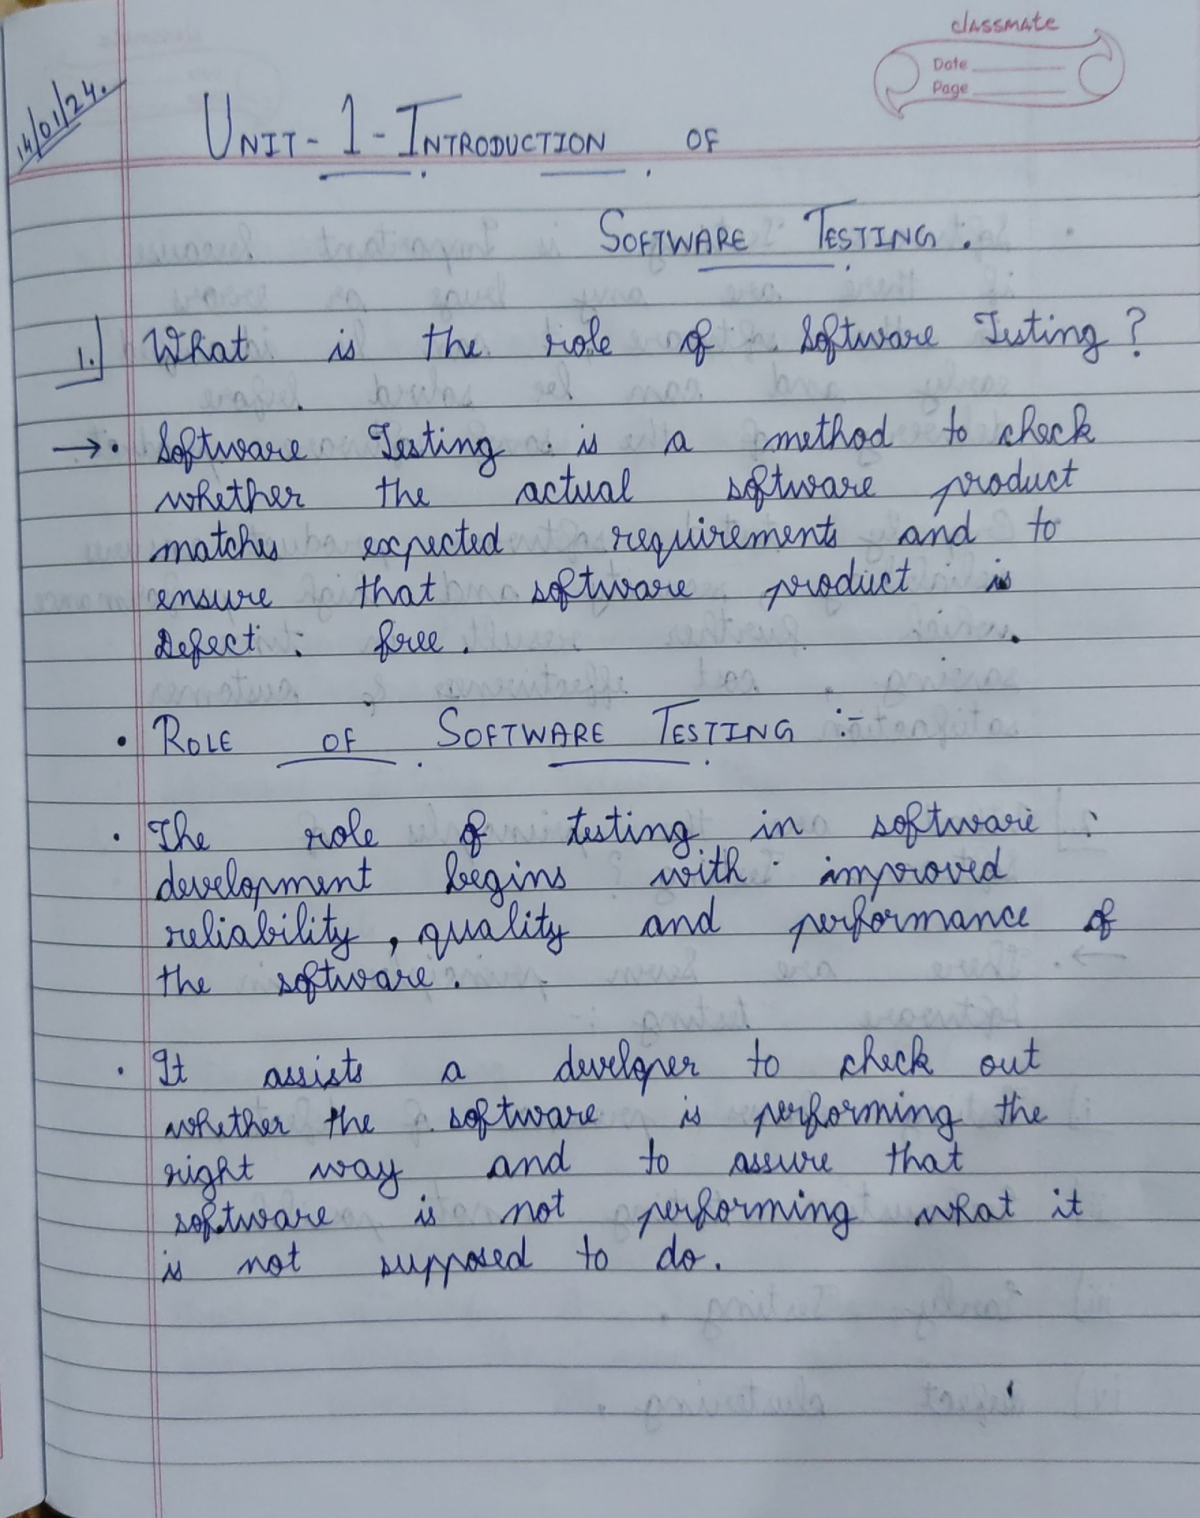 classmate
Date
Page
14/01/24.
UNIT - 1 - INTRODUCTION OF
SOFTWARE TESTING.
1.] What is the role of Software Testing?
→ • Software Testing is a method to check
whether the actual software product
matches expected requirements and to
ensure that software product is
Defect: free.
• ROLE OF SOFTWARE TESTING :-
• The role of testing in software
development begins with improved
reliability, quality and performance of
the software.
• It assists a developer to check out
whether the software is performing the
right way and to assure that
software is not performing what it
is not supposed to do.